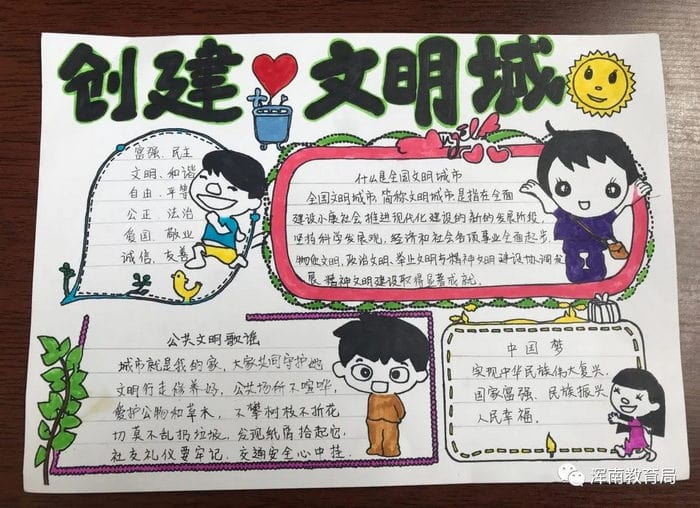 创建文明城
富强、民主
文明、和谐
自由、平等
公正、法治
爱国、敬业
诚信、友善
Angel
什么是全国文明城市
全国文明城市,简称文明城市,是指在全面
建设小康社会推进现代化建设的新的发展阶段,
坚持科学发展观,经济和社会各项事业全面起步,
物质文明、政治文明、
文明与精神文明建设协调发
展,精神文明建设取得显著成就.
公共文明歌谣
城市就是我的家,大家共同守护她
文明行走修养好,公共场所不喧哗,
爱护公物和草木,不攀树枝不折花
切莫不乱扔垃圾,发现纸屑拾起它,
社交礼仪要牢记,交通安全心中挂.
中国梦
实现中华民族伟大复兴,
国家富强、民族振兴
人民幸福.
浑南教育局